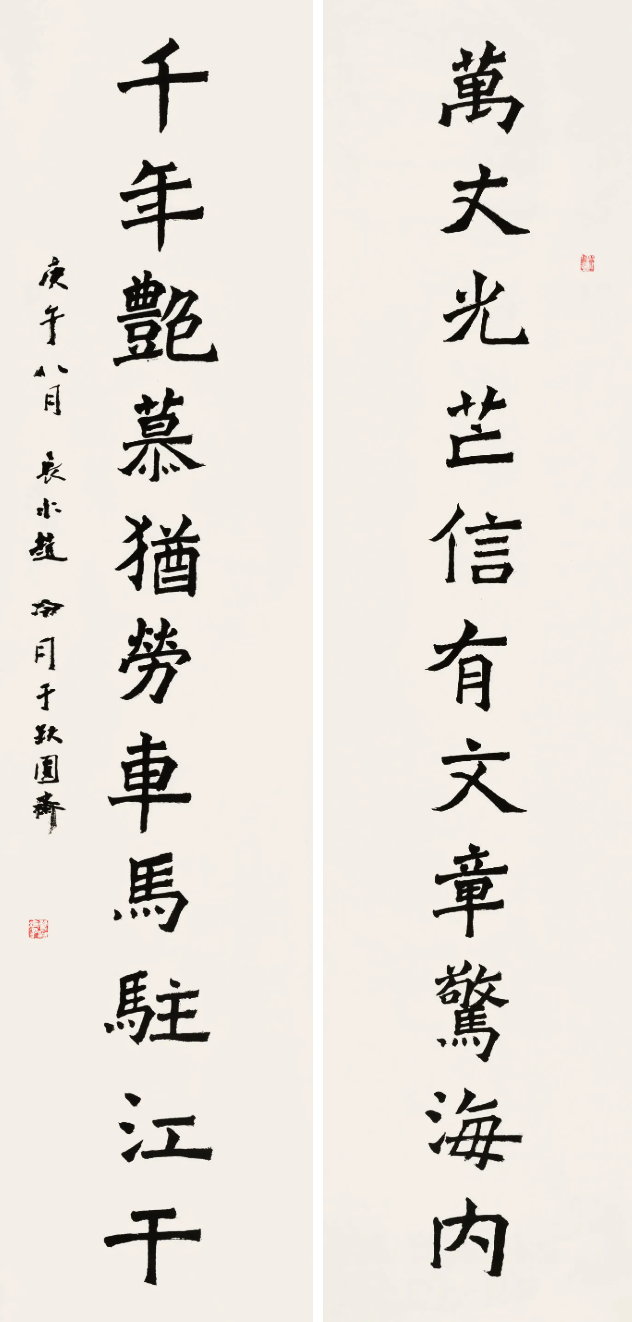 萬丈光芒信有文章驚海內
千年艷慕猶勞車馬駐江干
庚午八月 長水趙冷月于缺圓齋